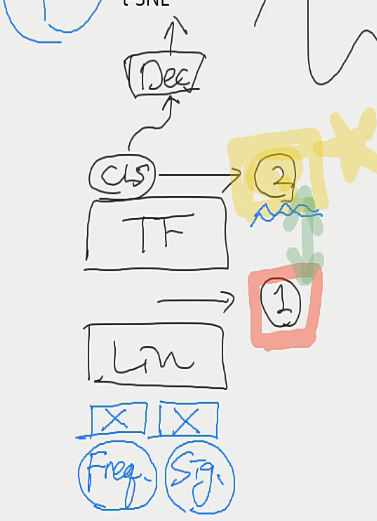 t-SNE
Dec
CLS
2
TF
1
Lin
X X
Freq. Sig.